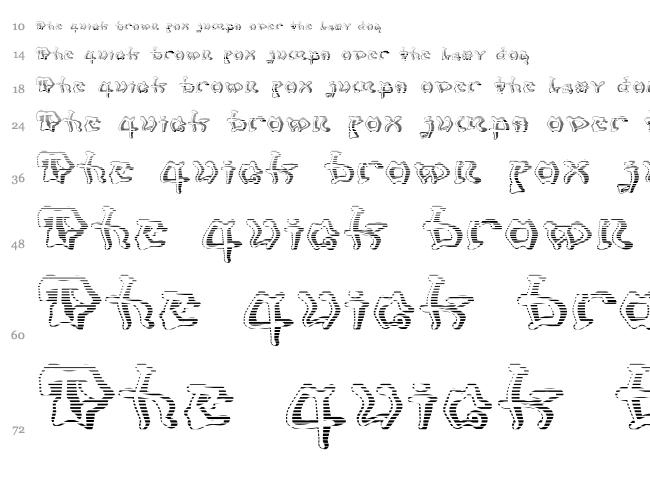 10 The quick brown fox jumps over the lazy dog
14 The quick brown fox jumps over the lazy dog
18 The quick brown fox jumps over the lazy do
24 The quick brown fox jumps over
36 The quick brown fox ju
48 The quick brown
60 The quick bro
72 The quick